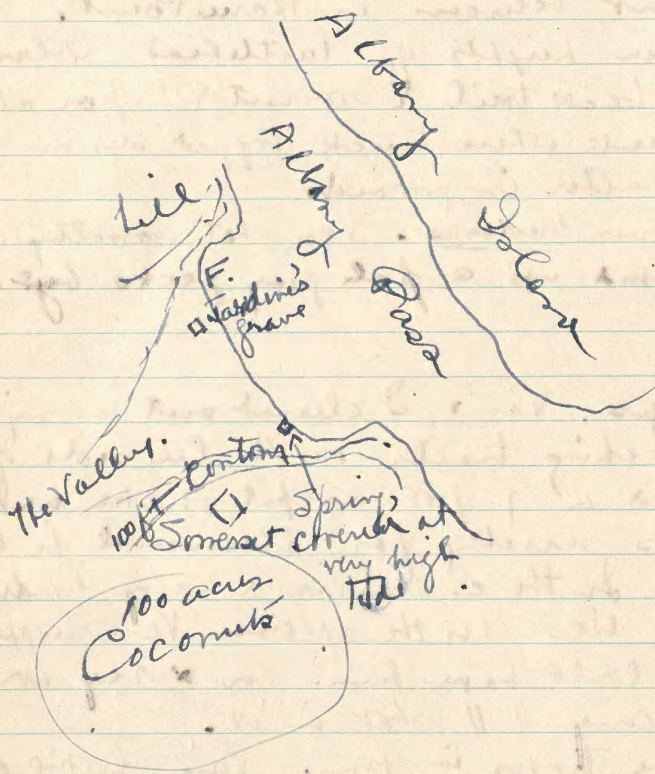 Albany
Island
Albany
Pass
Hill
F.
Jardine's
grave
The Valley.
100 ft Contour
Somerset
Spring,
covered at
very high
Tide
100 acres
Coconuts